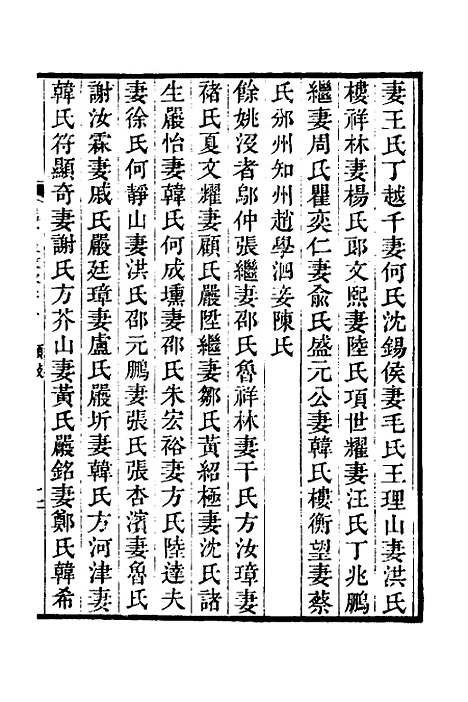 妻王氏丁越千妻何氏沈錫侯妻毛氏王理山妻洪氏
樓祥林妻楊氏郎文熙妻陸氏項世耀妻汪氏丁兆鵬
繼妻周氏瞿奕仁妻兪氏盛元公妻韓氏樓衡望妻蔡
氏邠州知州趙學泗妾陳氏
餘姚沒者邬仲張繼妻邵氏魯祥林妻干氏方汝璋妻
褚氏夏文耀妻顧氏嚴陞繼妻鄒氏黃紹極妻沈氏諸
生嚴怡妻韓氏何成壎妻邵氏朱宏裕妻方氏陸達夫
妻徐氏何靜山妻洪氏邵元鵬妻張氏張杏濱妻魯氏
謝汝霖妻戚氏嚴廷璋妻盧氏嚴圻妻韓氏方河津妻
韓氏符顯奇妻謝氏方芥山妻黃氏嚴銘妻鄭氏韓希